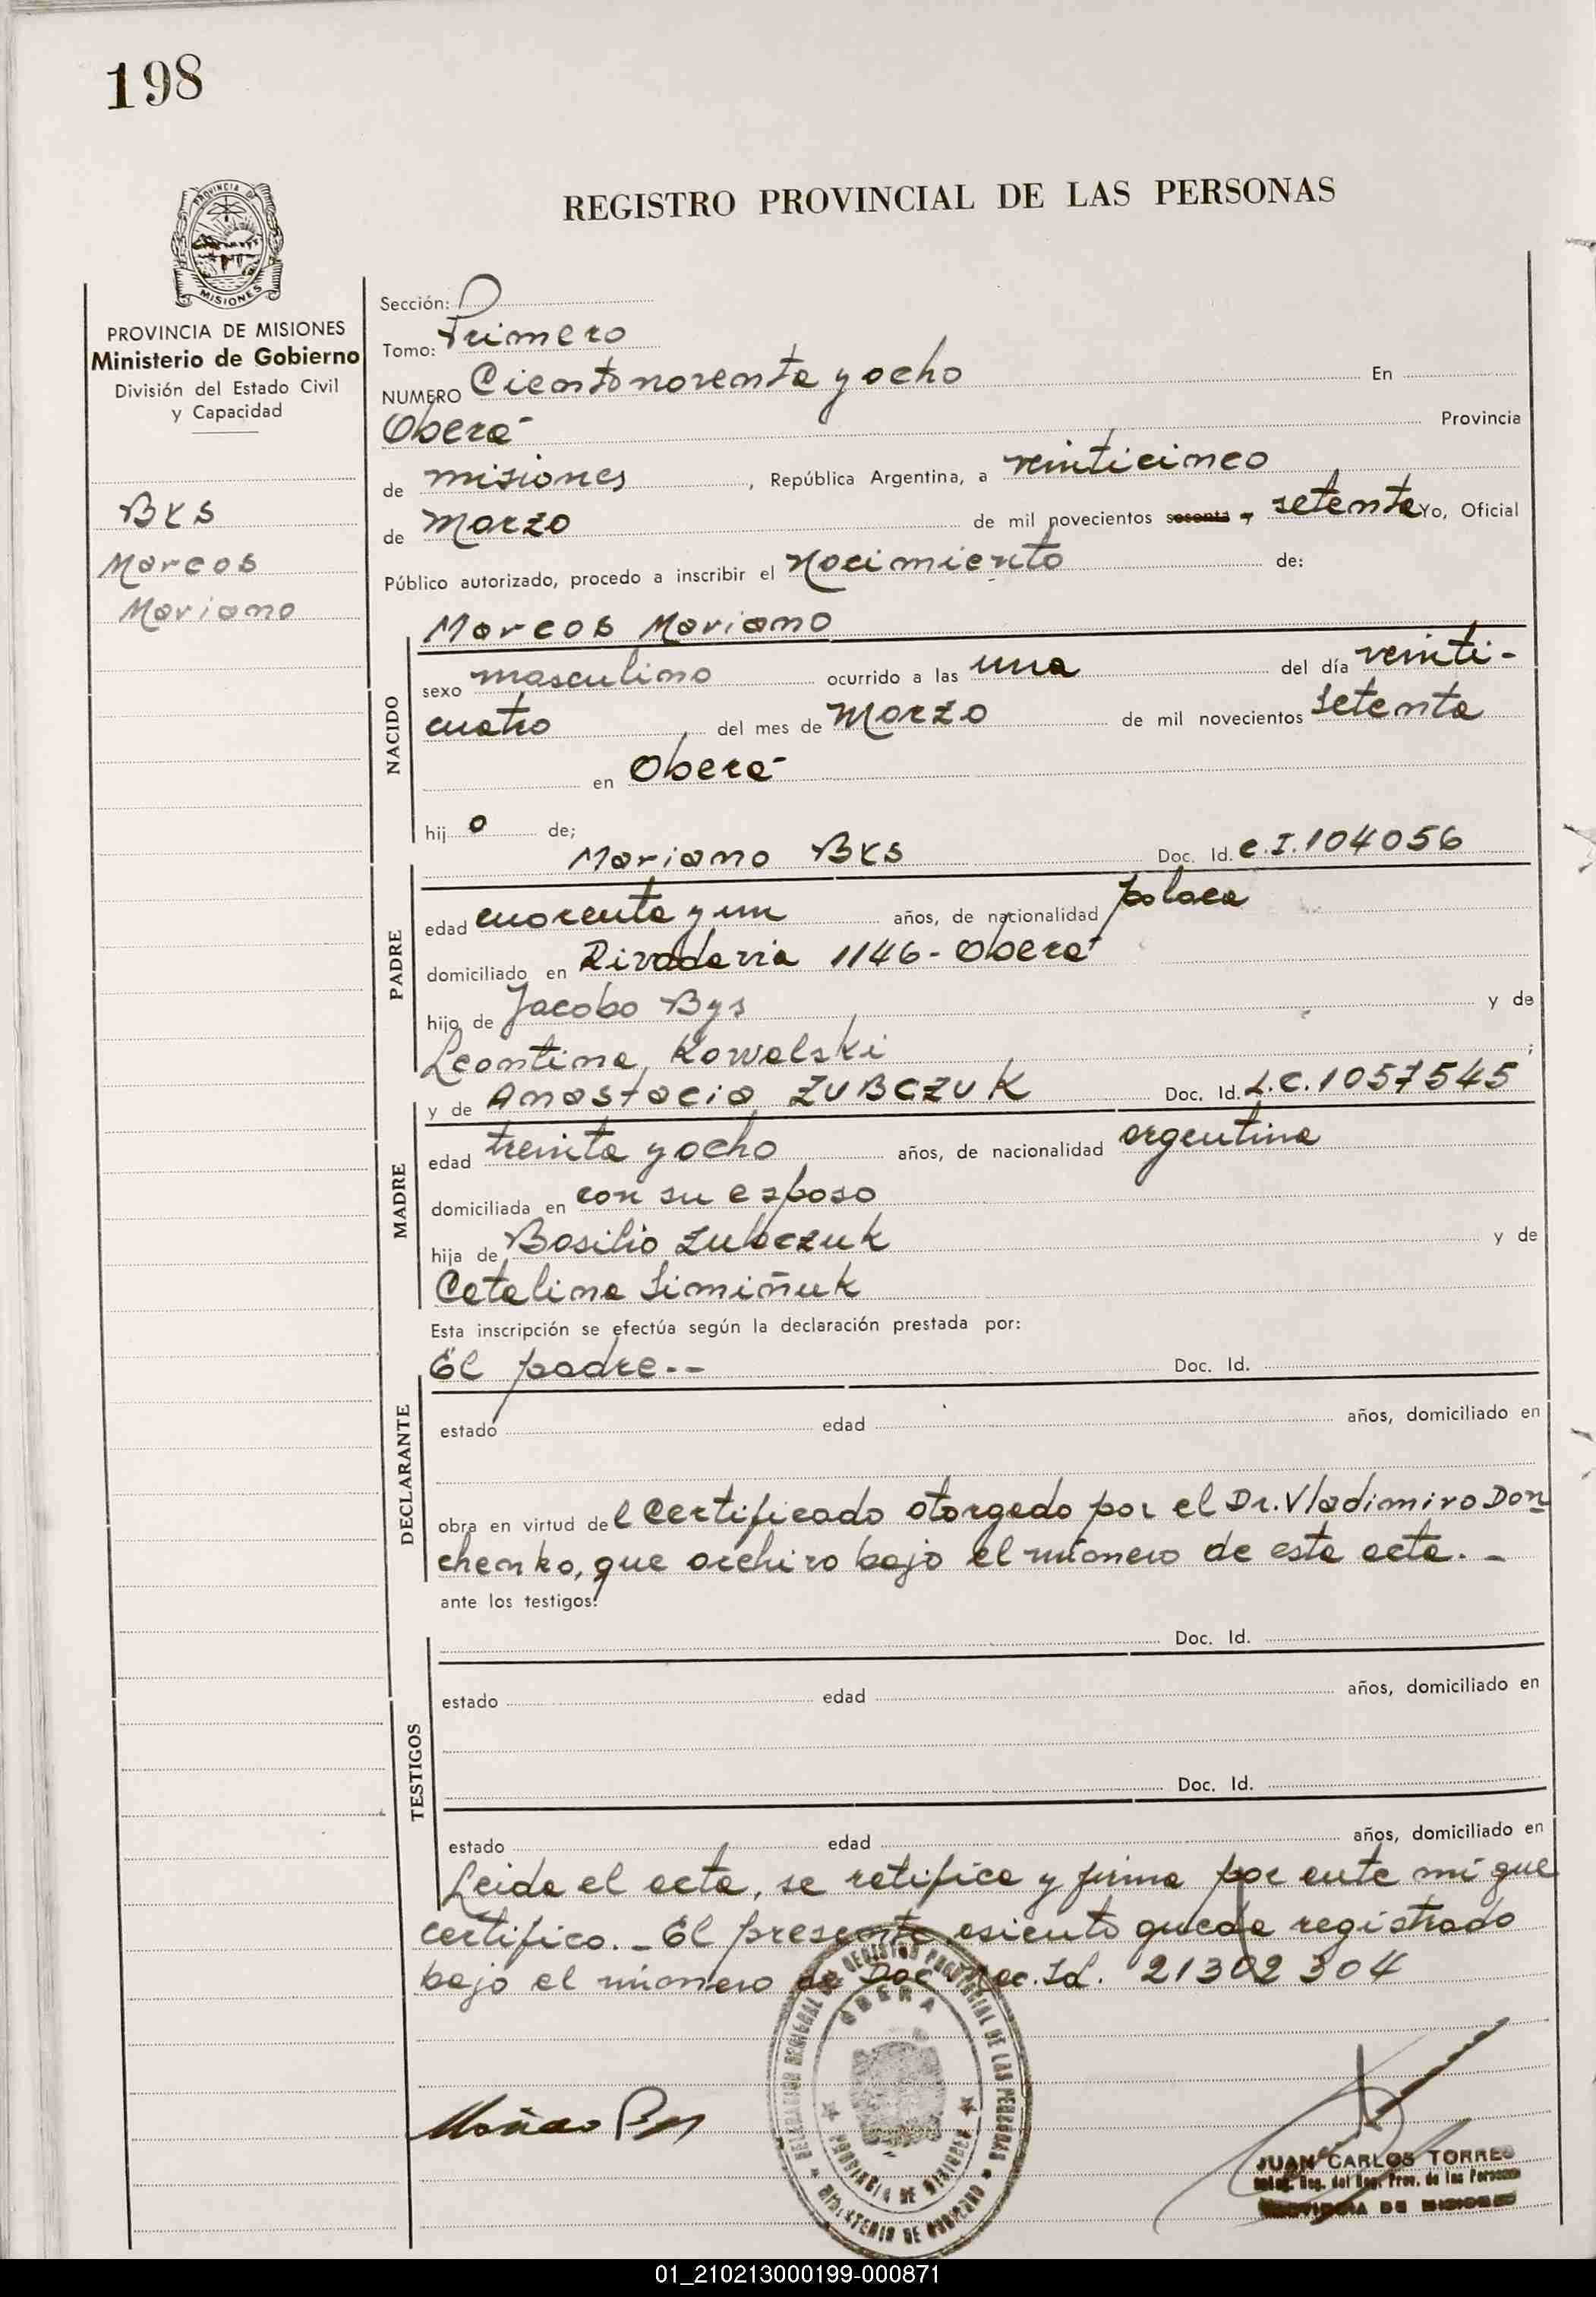 198
PROVINCIA DE
MISIONES
REGISTRO PROVINCIAL DE LAS PERSONAS
PROVINCIA DE MISIONES
Ministerio de Gobierno
División del Estado Civil
y Capacidad
BYS
Marcos
Mariano
Sección:
Tomo: Primero
NUMERO Ciento noventa y ocho En
Oberá Provincia
de misiones, República Argentina, a veinticinco
de Marzo de mil novecientos sesenta y setenta Yo, Oficial
Público autorizado, procedo a inscribir el Nacimiento de:
Marcos Mariano
NACIDO
sexo masculino ocurrido a las una del día veinti-
cuatro del mes de Marzo de mil novecientos setenta
en Oberá
hij o de;
Mariano BYS Doc. Id. C.I. 104056
PADRE
edad cuarenta y un años, de nacionalidad polaca
domiciliado en Rivadavia 1146 - Oberá
hijo de Jacobo Bys y de
Leontina Kowalski ;
y de Anastacia ZUBCZUK Doc. Id. L.C. 1057545
MADRE
edad treinta y ocho años, de nacionalidad argentina
domiciliada en con su esposo
hija de Basilio Zubczuk y de
Catalina Simiñuk
Esta inscripción se efectúa según la declaración prestada por:
El padre-- Doc. Id.
DECLARANTE
estado edad años, domiciliado en
obra en virtud del Certificado otorgado por el Dr. Vladimiro Don
chenko, que archivo bajo el número de esta acta. -
ante los testigos:
Doc. Id.
TESTIGOS
estado edad años, domiciliado en
Doc. Id.
estado edad años, domiciliado en
Leida el acta, se ratifica y firma por ante mí que
certifico. - El presente asiento queda registrado
bajo el número de Doc. Nac. Id. 21302304
DELEGACION REGIONAL REGISTRO PROVINCIAL DE LAS PERSONAS
OBERA
PROVINCIA DE MISIONES
MINISTERIO DE GOBIERNO
JUAN CARLOS TORRES
Reg. del Reg. Prov. de las Personas
PROVINCIA DE MISIONES
01_210213000199-000871